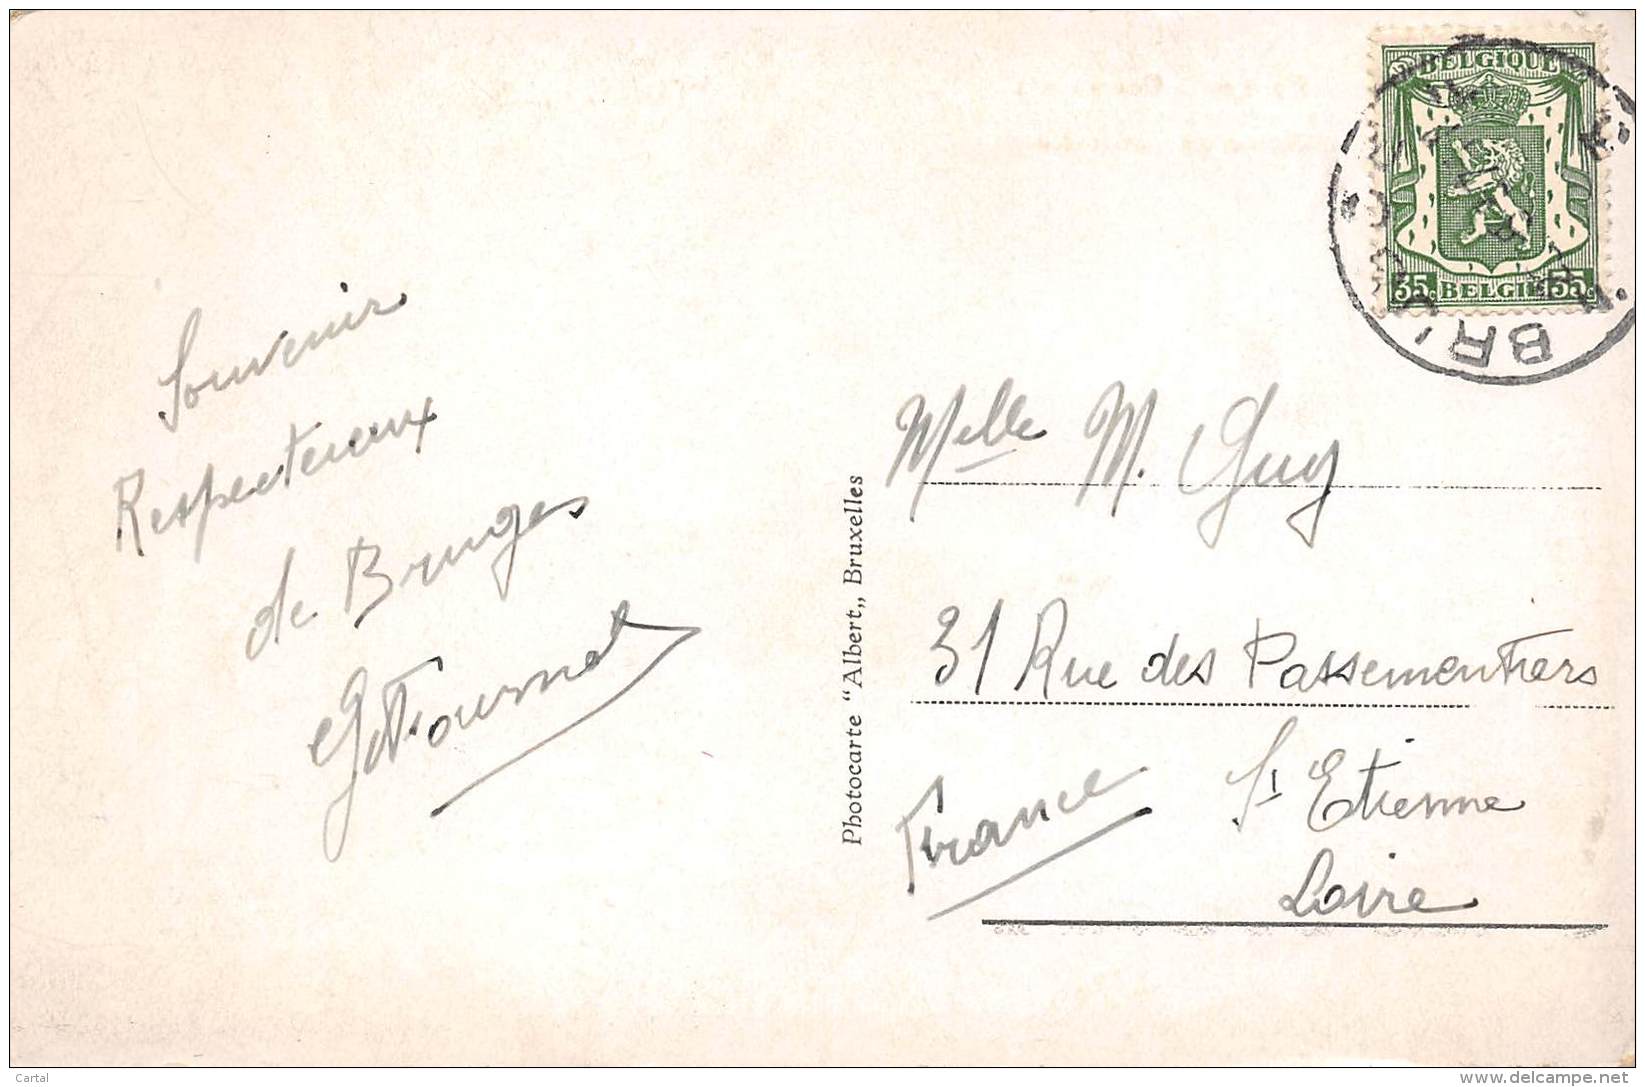 Souvenir
Respectueux
de Bruges
Photocarte "Albert„ Bruxelles
BELGIQUE
35c BELGIE 35c
BR
Melle M. Guy
31 Rue des Passementiers
St Etienne
Loire
France
Cartal
www.delcampe.net